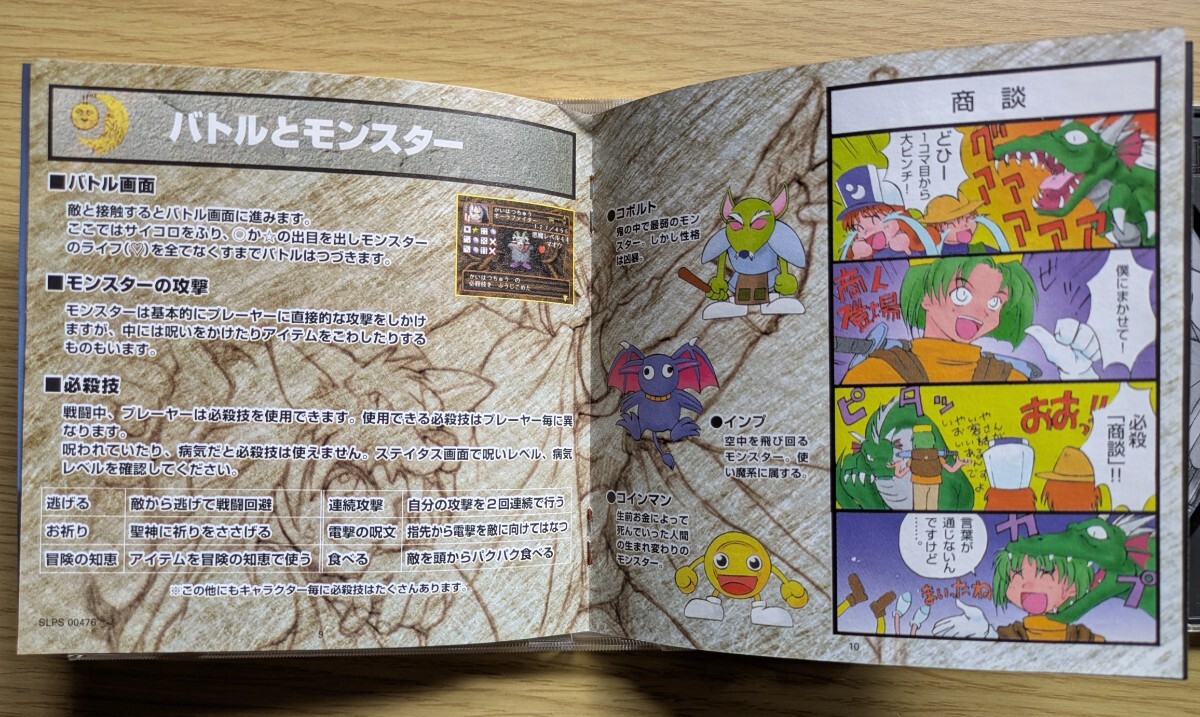 バトルとモンスター
■バトル画面
敵と接触するとバトル画面に進みます。
ここではサイコロをふり、◎か☆の出目を出しモンスター
のライフ(♡)を全てなくすまでバトルはつづきます。
■モンスターの攻撃
モンスターは基本的にプレーヤーに直接的な攻撃をしかけ
ますが、中には呪いをかけたりアイテムをこわしたりする
ものもいます。
■必殺技
戦闘中、プレーヤーは必殺技を使用できます。使用できる必殺技はプレーヤー毎に異
なります。
呪われていたり、病気だと必殺技は使えません。ステイタス画面で呪いレベル、病気
レベルを確認してください。
逃げる 敵から逃げて戦闘回避 連続攻撃 自分の攻撃を2回連続で行う
お祈り 聖神に祈りをささげる 電撃の呪文 指先から電撃を敵に向けてはなつ
冒険の知恵 アイテムを冒険の知恵で使う 食べる 敵を頭からバクバク食べる
※この他にもキャラクター毎に必殺技はたくさんあります。
SLPS 00476
9
●コボルト
鬼の中で最弱のモン
スター。しかし性格
は凶暴。
●インプ
空中を飛び回る
モンスター。使
い魔系に属する。
●コインマン
生前お金によって
死んでいった人間
の生まれ変わりの
モンスター。
商談
グァァァァ
どひー
1コマ目から
大ピンチ!
僕にまかせて!
商人
必殺
「商談」!!
おおっ!!
ピタッ
言葉が
通じないん
ですけど
……。
カプ
まいったね
10